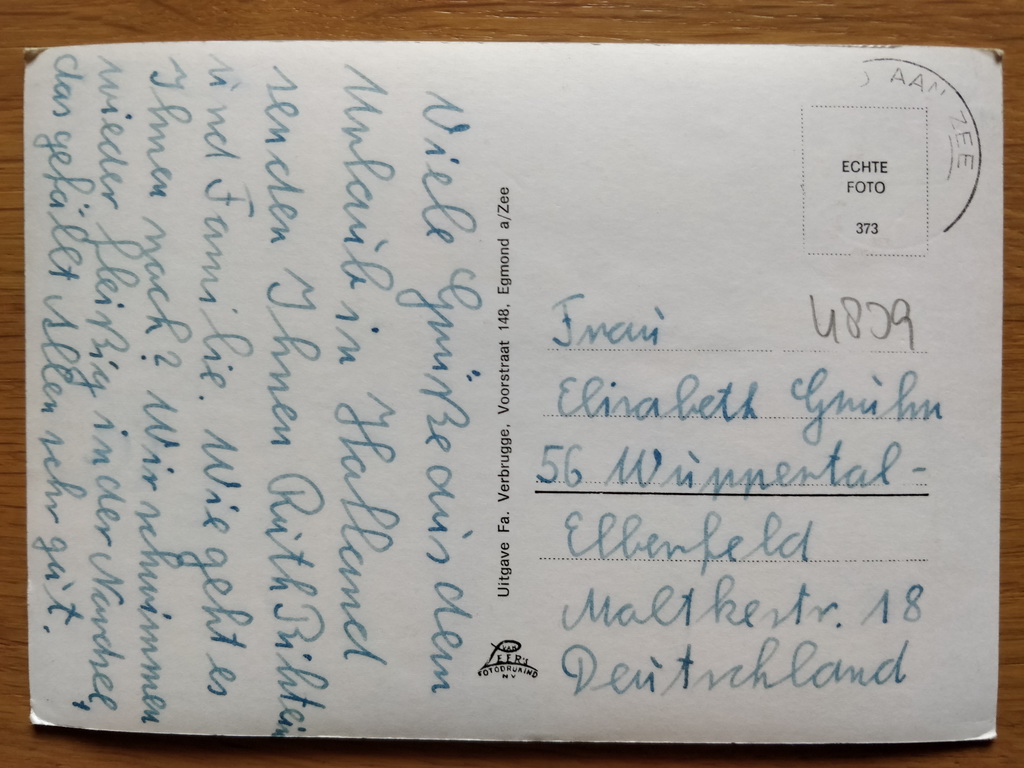 Viele Grüße aus dem
Urlaub in Holland
senden Ihnen Ruth
und Familie. Wie geht es
Ihnen noch? Wir schwimmen
wieder fleißig in der Nordsee,
das gefällt Allen sehr gut.
Uitgave Fa. Verbrugge, Voorstraat 148, Egmond a/Zee
VAN LEER'S
FOTODRUKIND
N V
AAN ZEE
ECHTE
FOTO
373
4809
Frau
Elisabeth Gruhn
56 Wuppertal-
Elberfeld
Moltkestr. 18
Deutschland